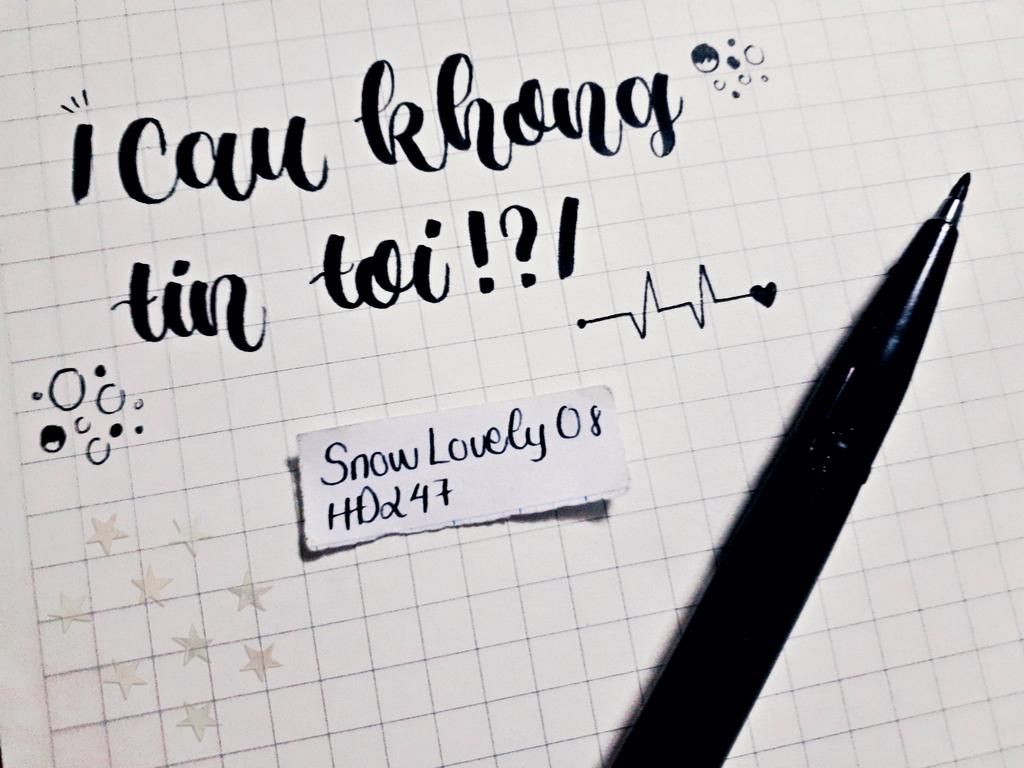 / Cau khong
tin toi !? /
Snow Lovely 08
HDα247